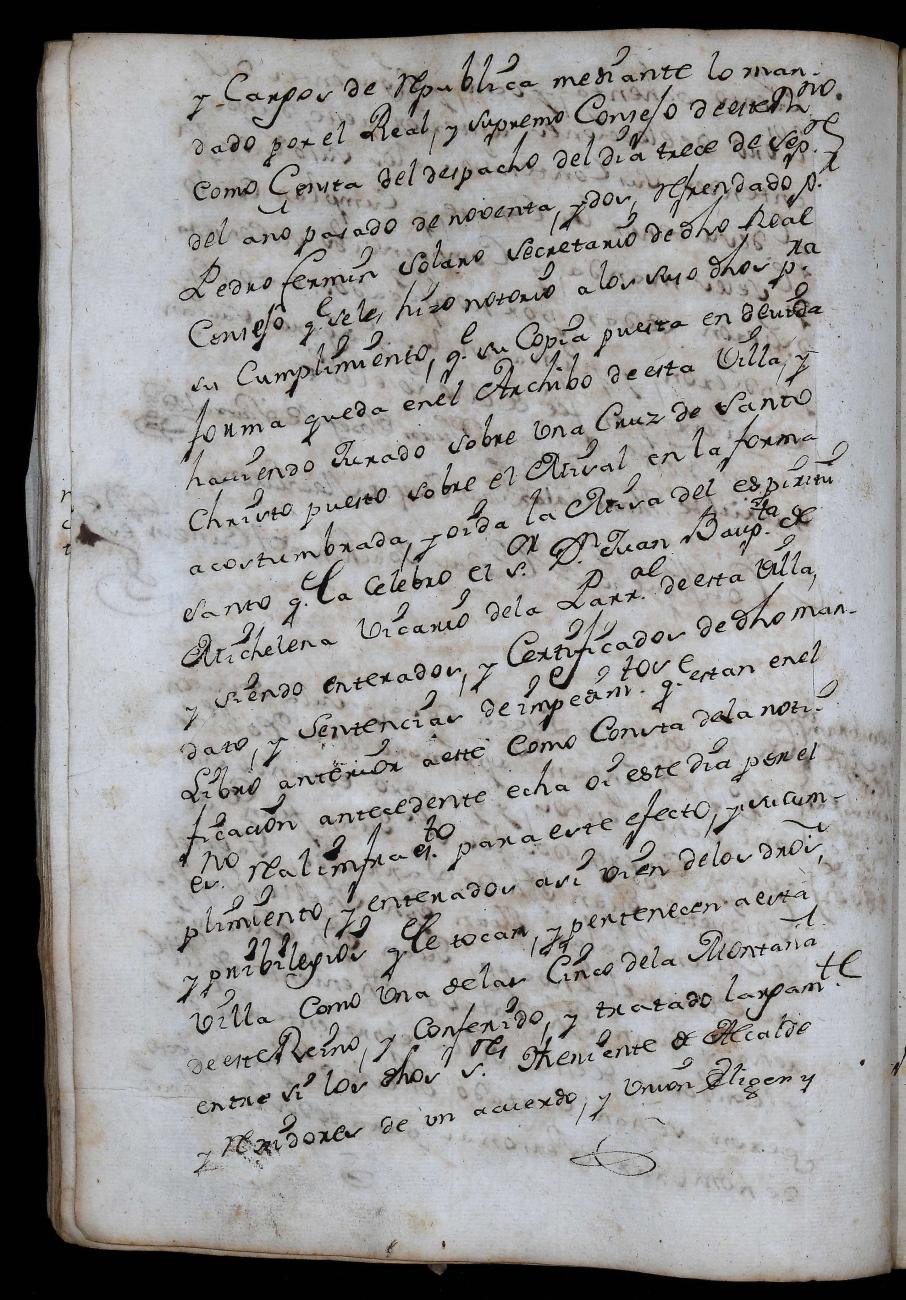 y Cargos de Republica mediante lo man-
dado por el Real, y supremo Consejo de este Rno.
como Consta del despacho del dia trece de Sep.re
del año pasado de noventa, y dos, Refrendado p.r
Pedro fermin Solano Secretario de dho Real
Consejo q.e se les hizo notorio a los suso dhos p.ra
su Cumplimiento, q.e su Copia puesta en devida
forma queda en el Archibo de esta Villa, y
haviendo Jurado sobre una Cruz de Santo
Christo puesto sobre el Misal en la forma
acostumbrada, y oida la Misa del espiritu
santo q.e la Celebro el s.or D.n Juan Baup.ta de
Michelena Vicario dela Parr.al de esta Villa,
y siendo enterados, y Certificados de dho man-
dato, y Sentencias de impedim.tos q.e estan en el
Libro anterior a este Como Consta dela noti-
ficacion antecedente echa oi este dia por el
es.no real imfraes.to para este efecto, y su cum-
plimiento, y enterados asi vien de los dros,
y pribilegios q.e le tocan, y pertenecen a esta
Villa Como Una de las Cinco dela Montaña
de este Reino, y Conferido, y tratado largam.te
entre si los dhos s.res Theniente de Alcalde
y Regidores de un acuerdo, y Union Eligen y